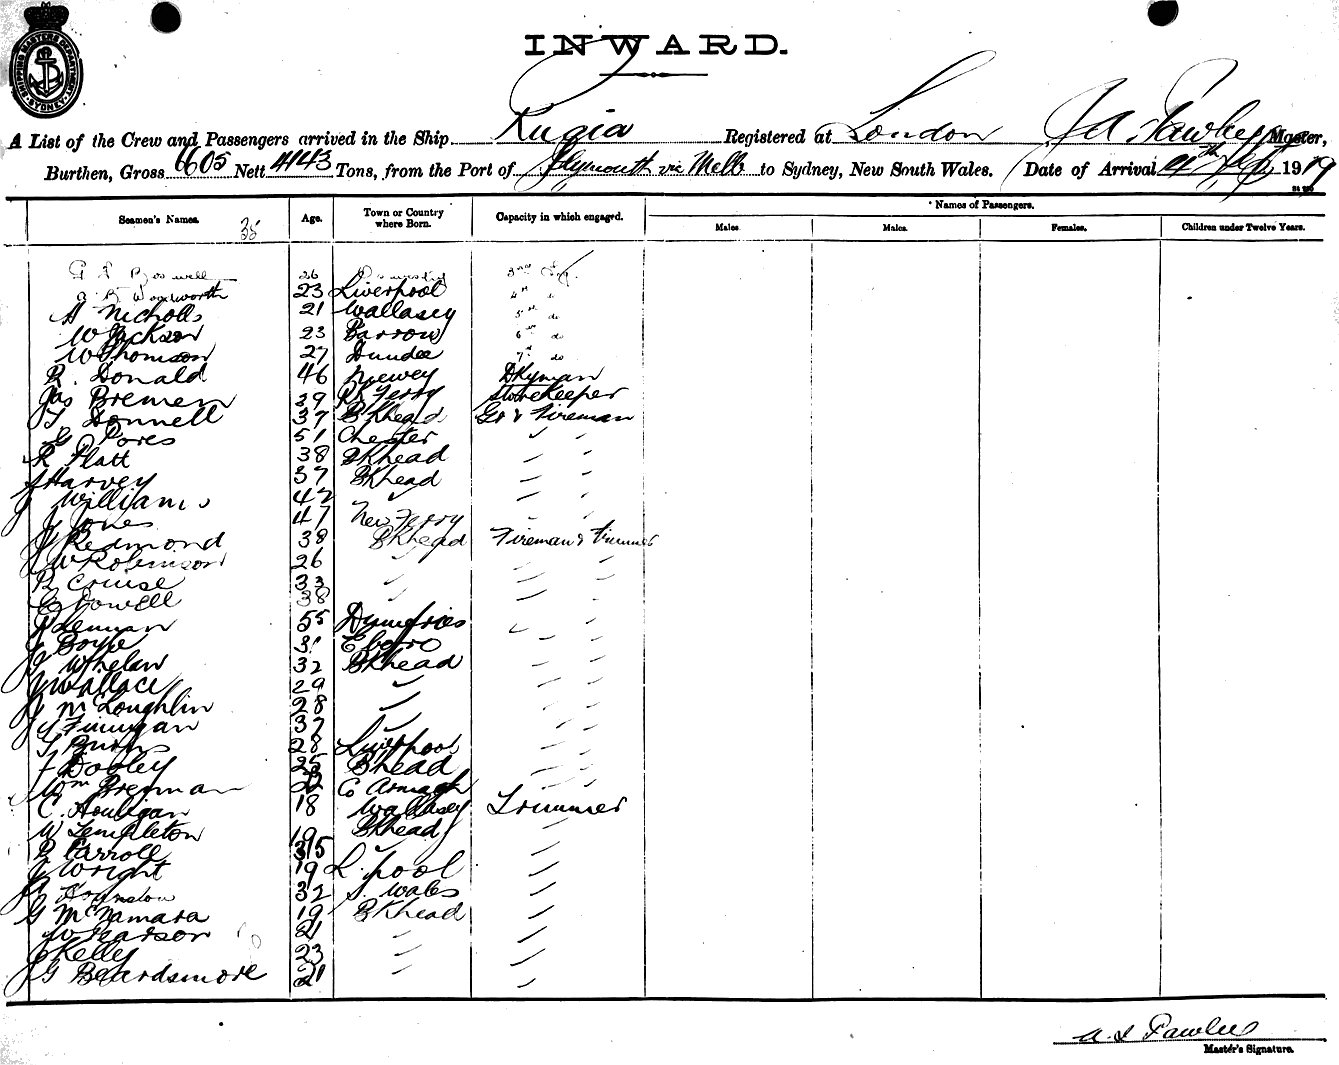 SHIPPING MASTERS DEPARTMENT
SYDNEY
INWARD.
A List of the Crew and Passengers arrived in the Ship Rugia Registered at London Master,
Burthen, Gross 6605 Nett 4143 Tons, from the Port of Plymouth via Melb to Sydney, New South Wales. Date of Arrival 4th 1919
Seamen's Names. Age. Town or Country where Born. Capacity in which engaged. Names of Passengers.
35
Males. Males. Females. Children under Twelve Years.
26 3rd
23 Liverpool 4th
A Nicholls 21 Wallasey 5th do
W Jackson 23 Barrow 6th do
W Thomson 27 Dundee 7th do
R. Donald 46 Newry Dkyman
Jas Bremen 29 Rk Ferry Storekeeper
T Donnell 37 Bkhead Gr & Fireman
Pores 51 Chester
R Platt 38 Bkhead
Harvey 37 Bkhead
J Williams 42
J Jones 47 New Ferry
J Redmond 38 Bkhead Fireman & Trimmer
J W Robinson 26
R Cruise 33
Dowell 38
Lennan 55 Dumfries
J Boyle 31
J Whelan 32 Bkhead
J Wallace 29
J McLoughlin 28
J Finnigan 37
T Burns 28 Liverpool
J Dooley 25 Bhead
Wm Brennan 22 Co Armagh
C. Houligan 18 Wallasey Trimmer
W Templeton 19 Bkhead
P Carroll
J Wright 19 L'pool
32 S. Wales
G McNamara 19 Bkhead
W Pearson 21
J Kelly 23
J G Beardsmore 21
Master's Signature.